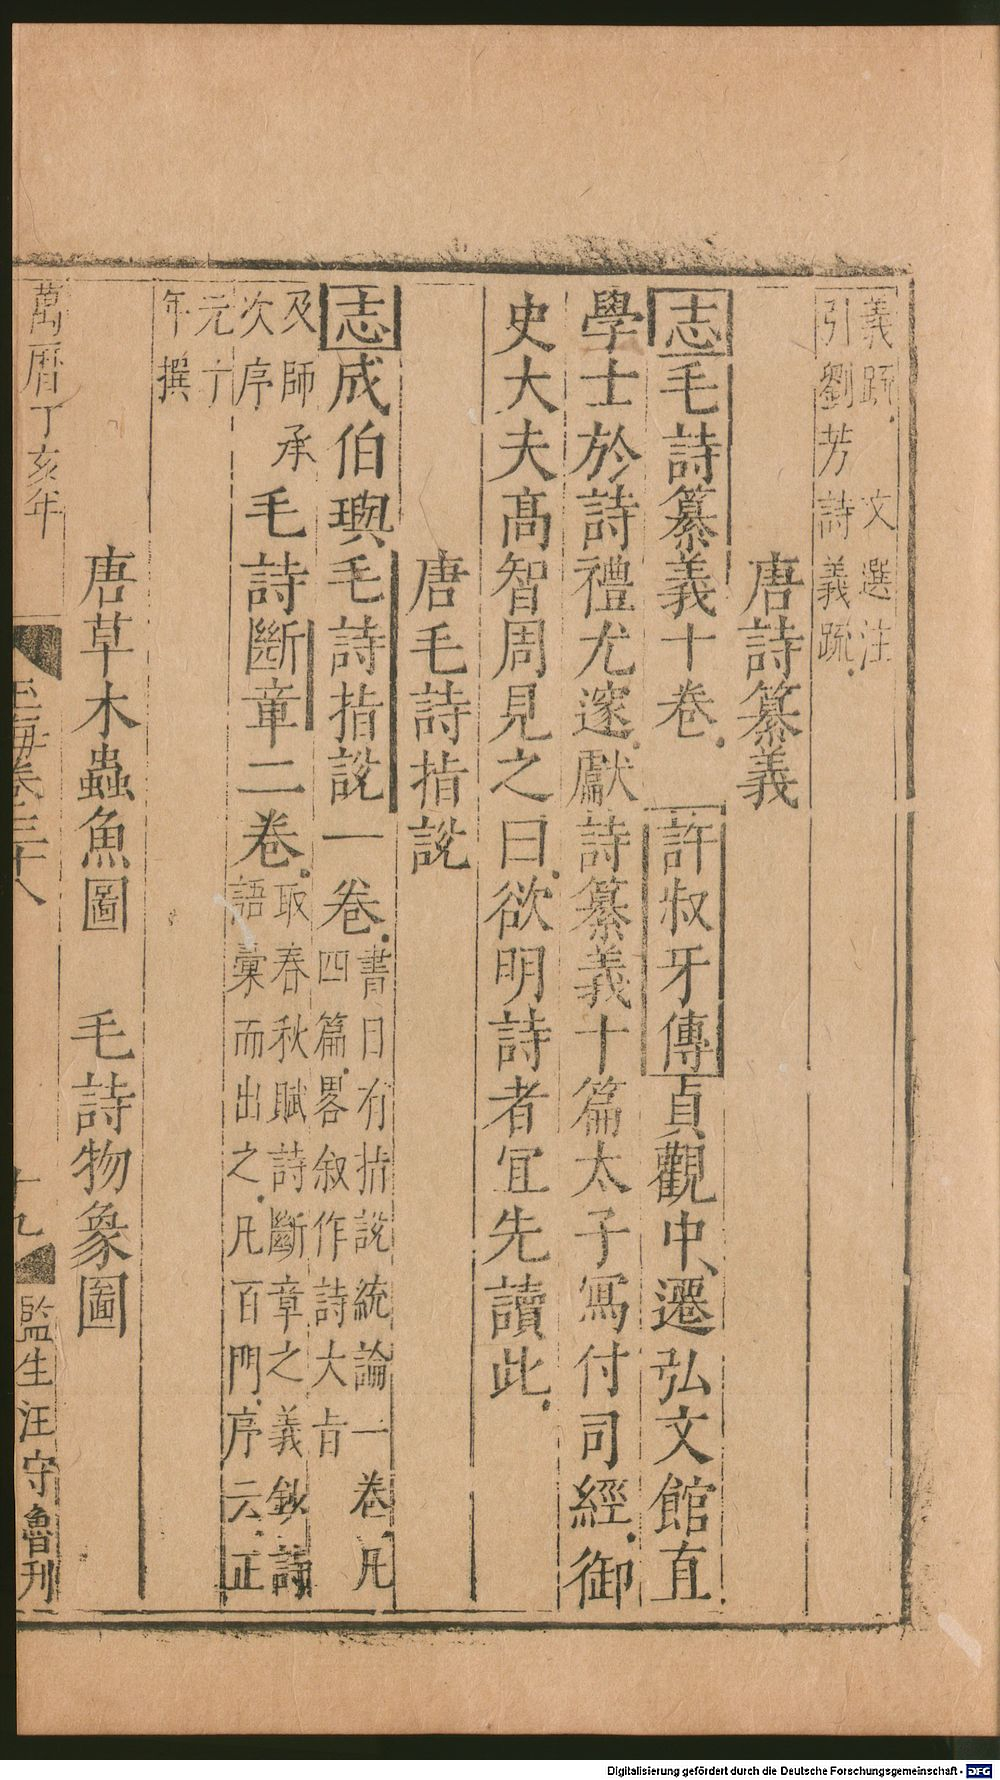 義疏。文選注
引劉芳詩義疏。
唐詩纂義
志毛詩纂義十卷。許叔牙傳貞觀中、遷弘文館直
學士於詩禮尤邃。獻詩纂義十篇太子寫付司經。御
史大夫高智周見之曰。欲明詩者宜先讀此。
唐毛詩指說
志成伯璵毛詩指說一卷。書日有指說統論一卷。凡
四篇。畧叙作詩大旨
及師承
次序
毛詩斷章二卷。取春秋賦詩斷章之義鈔詩
語彙而出之。凡百門。序云。正
元丁
年撰
唐草木蟲魚圖 毛詩物象圖
萬曆丁亥年 玉海卷三十八 十九 監生汪守魯刊
Digitalisierung gefördert durch die Deutsche Forschungsgemeinschaft - DFG